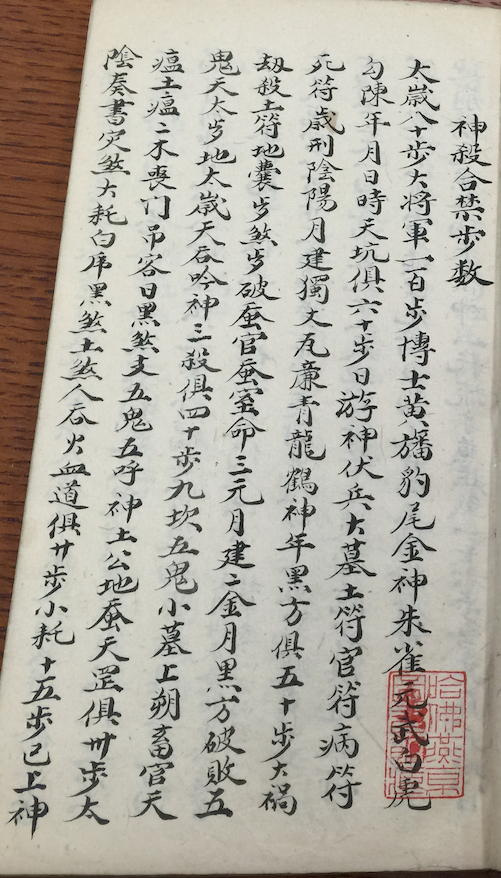 神殺合禁步数
太歲八十步大将軍一百步博士黄旛豹尾金神朱雀元武白虎
勾陳年月日時天坑俱六十步日游神伏兵大墓土符官符病符
死符歲刑陰陽月建獨丈瓦廉青龍鶴神年黑方俱五十步大禍
刼殺土符地囊歩煞歩破蚕官蚕室命三元月建二金月黑方破敗五
鬼天太歩地太歲天吞吟神三殺俱四十步九坎五鬼小墓上朔畜官天
瘟土瘟二木喪门吊客日黑煞支五鬼五呼神土公地蚕天罡俱卅步太
陰奏書灾煞大耗白席黑煞土煞人吞火血道俱廿步小耗十五步已上神
哈佛燕京